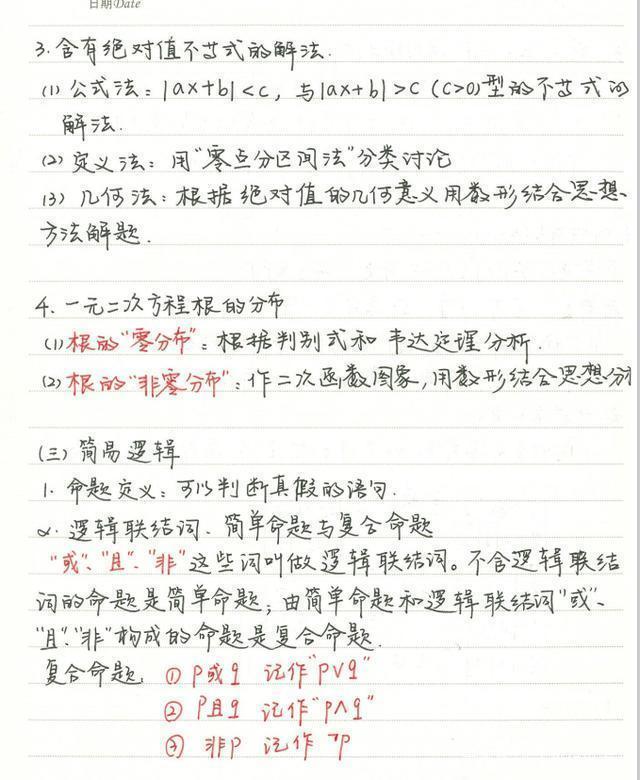 日期Date
3. 含有绝对值不等式的解法.
(1) 公式法: |ax+b|<c, 与|ax+b|>c (c>0)型的不等式的
解法.
(2) 定义法: 用"零点分区间法"分类讨论
(3) 几何法: 根据绝对值的几何意义用数形结合思想、
方法解题.
4. 一元二次方程根的分布
(1) 根的"零分布": 根据判别式和 韦达定理分析.
(2) 根的"非零分布": 作二次函数图象, 用数形结合思想分
(三) 简易逻辑
1. 命题定义: 可以判断真假的语句.
2. 逻辑联结词、简单命题与复合命题
"或"、"且"、"非"这些词叫做逻辑联结词。不含逻辑联结
词的命题是简单命题; 由简单命题和逻辑联结词"或"、
"且"、"非"构成的命题是复合命题.
复合命题: ① p或q 记作"p∨q"
② p且q 记作"p∧q"
③ 非p 记作 ¬p